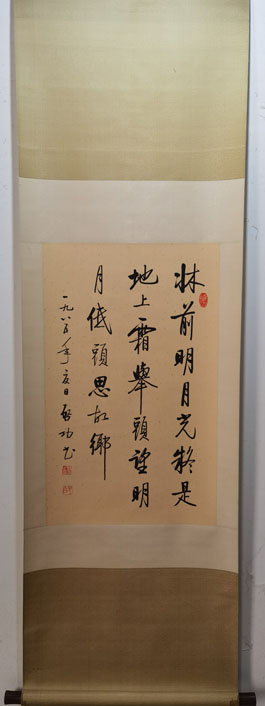 牀前明月光疑是
地上霜舉頭望明
月低頭思故鄉
一九八五年夏日啟功書